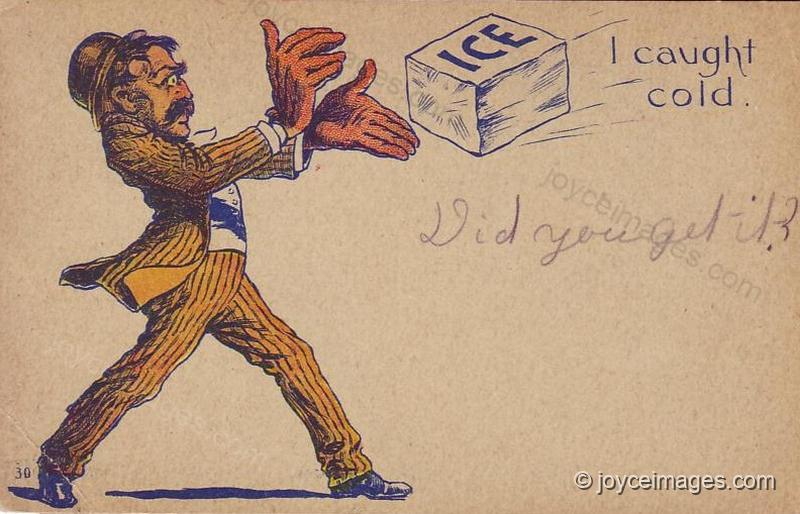 ICE
I caught
cold.
Did you get it?
30
joyceimages.com
© joyceimages.com